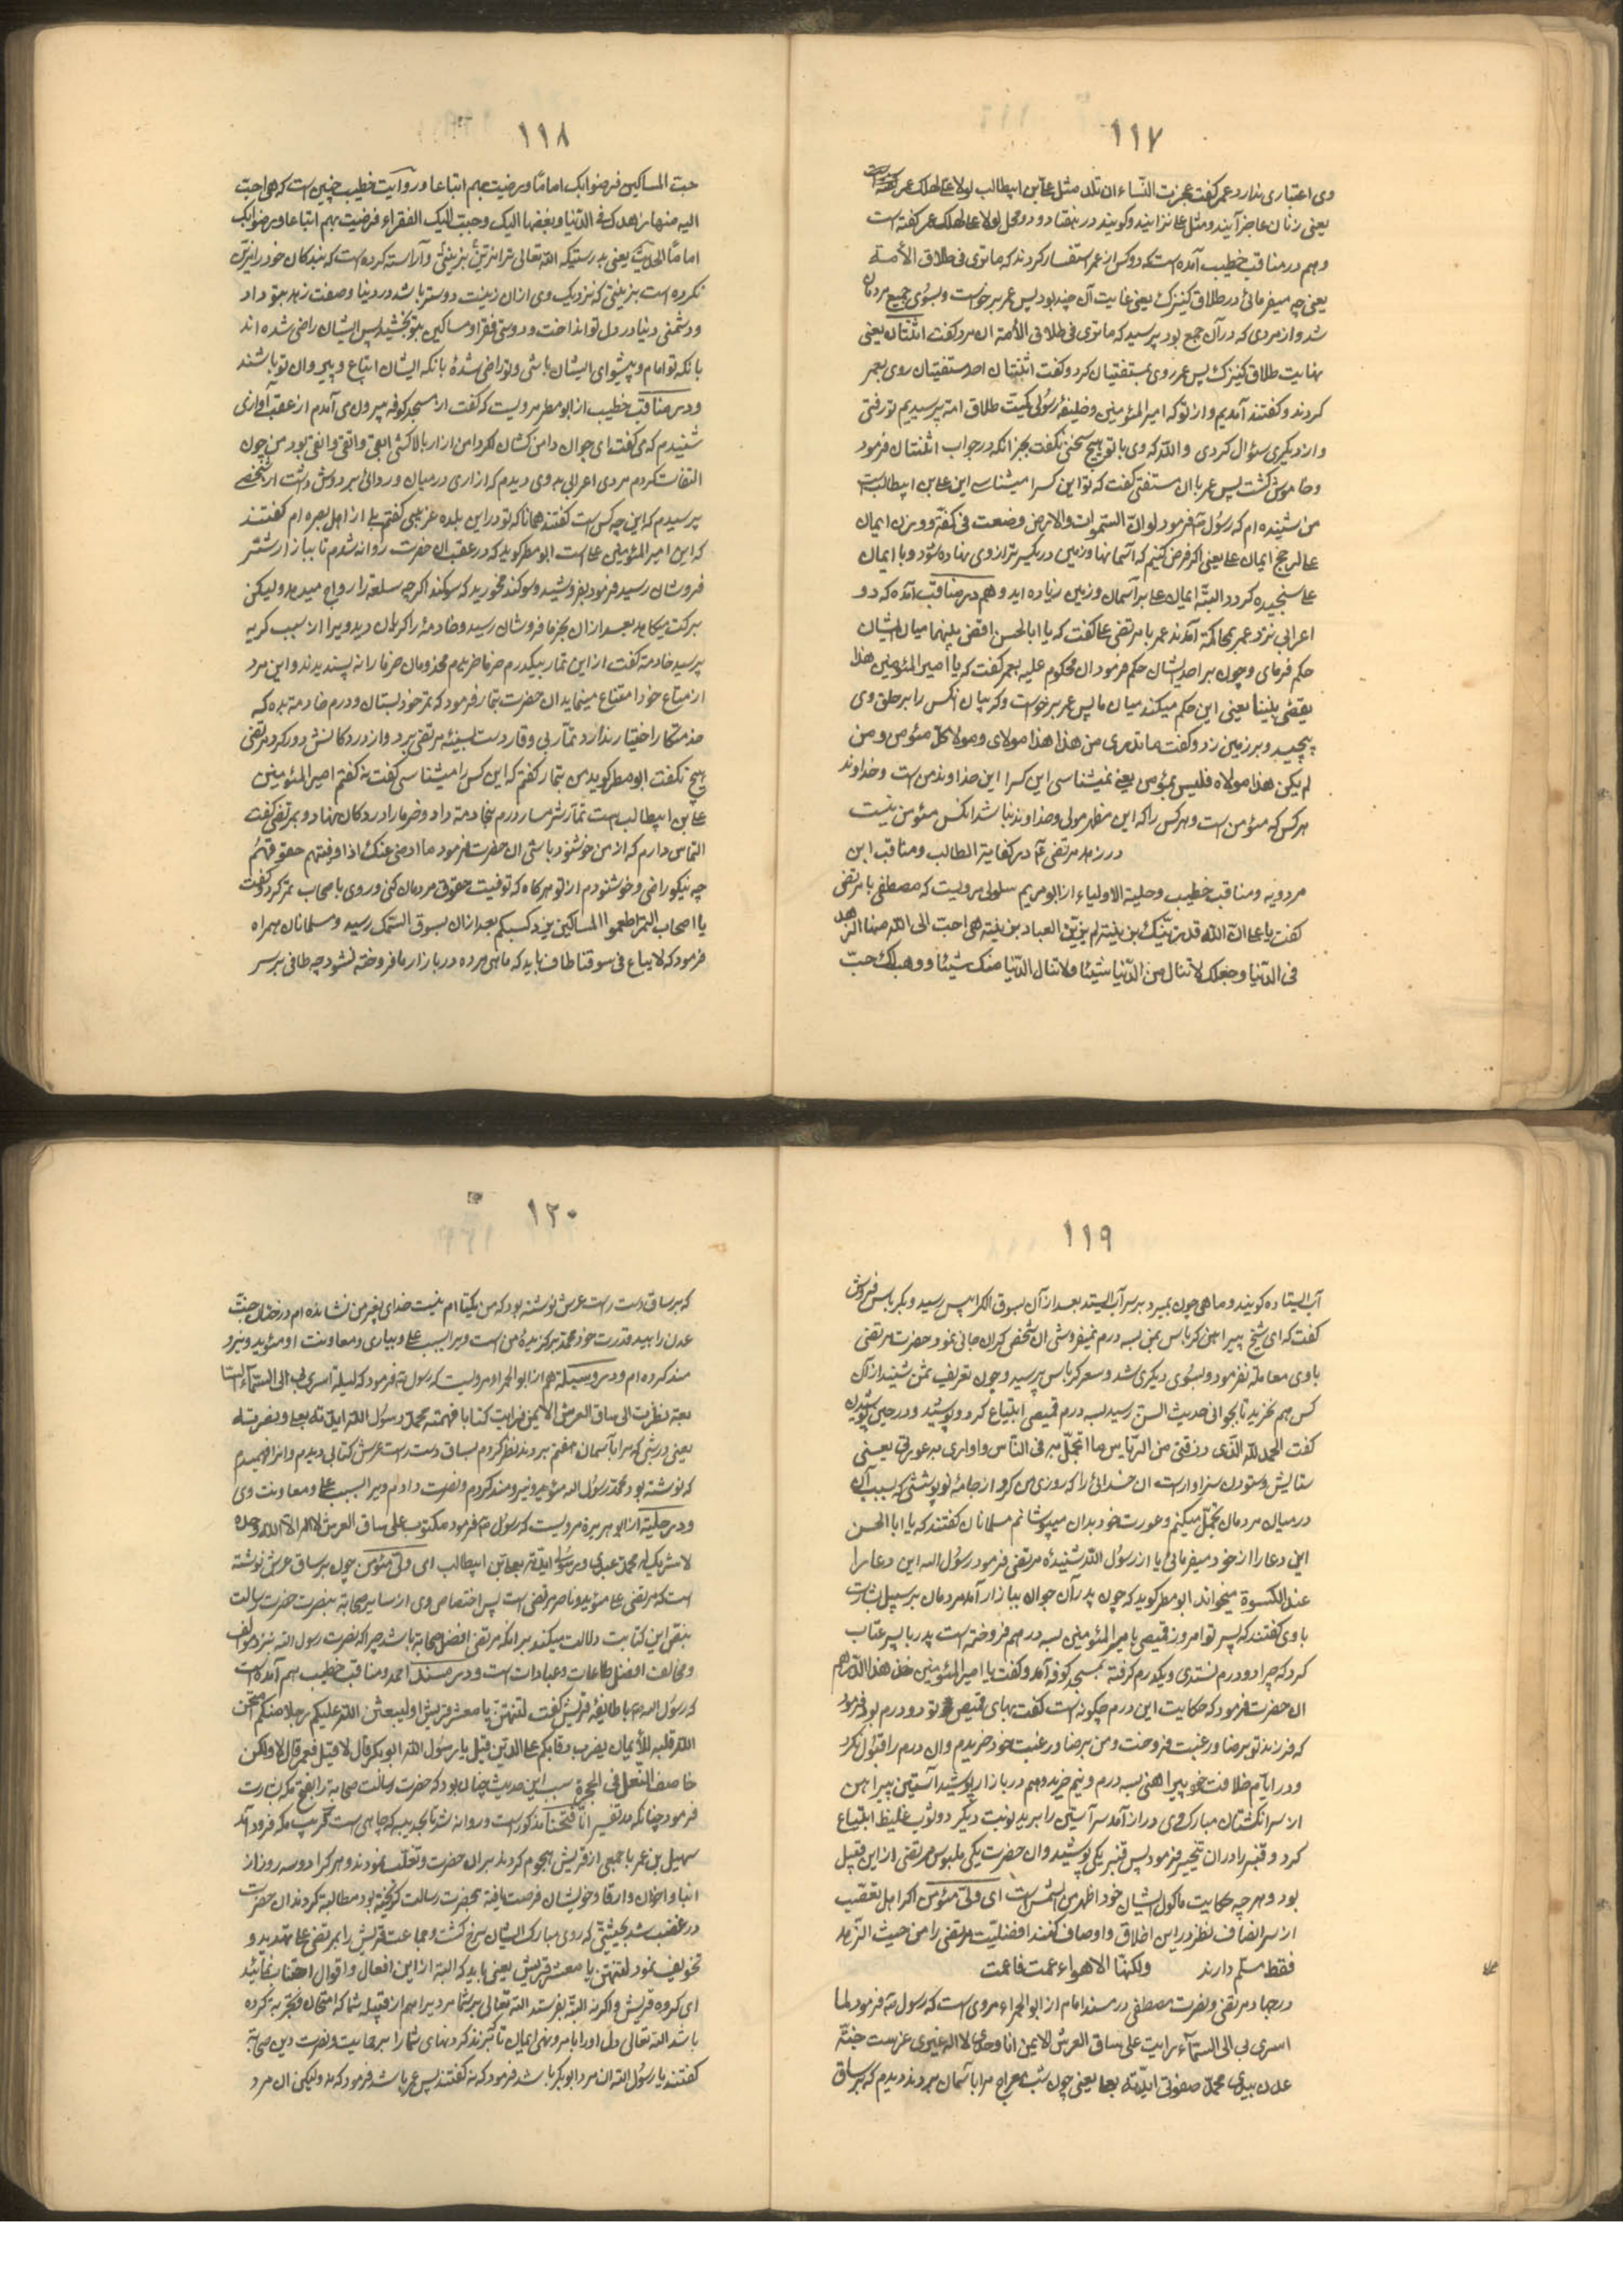 ١١٧
وی اعتباری ندارد عمر کفت عجزت النّساء ان تلد مثل علی بن ابیطالب لولا علی لهلک عمر
یعنی زنان عاجز آیند و مثل علی نزایند وکویند در هفتاد و دو محل لولا علی لهلک عمر کفته است
وهم در مناقب خطیب آمده است که دو کس از عمر استفسار کردند که ما تری فی طلاق الأمة
یعنی چه میفرمائی در طلاق کنیزک یعنی غایت آن چند بود پس عمر برخواست وبسوی جمیع مردمان
شد واز مردی که در آن جمع بود پرسید که ما تری فی طلاق الأمة ان مرد کفت اثنتان یعنی
نهایت طلاق کنیزک پس عمر روی بمستفتیان کرد وکفت اثنتان احد مستفتیان روی بعمر
کردند وکفتند آمدیم واز تو که امیرالمؤمنین وخلیفهٔ رسولی کمیت طلاق امة پرسیدیم تو رفتی
واز دیکری سؤال کردی واللّه که وی با تو هیچ سخنی نکفت بجز انکه در جواب اثنتان فرمود
وخاموش کشت پس عمر با ان مستفتی کفت که تو این کس را میشناسی این علی بن ابیطالب است
من شنیده ام که رسول فرمود لو انّ السّموات والارض وضعت فی کفّة ووزن ایمان
علی لرجح ایمان علی یعنی اکر فرض کنیم که آسمانها وزمین در یکسر ترازوی نهاده شود وبا ایمان
علی سنجیده کردد البتّه ایمان علی بر آسمان وزمین زیاده اید وهم در مناقب آمده که دو
اعرابی نزد عمر بمحاکمة آمدند عمر با مرتضی علی کفت که یا ابا لحسن اقض بینهما میان ایشان
حکم فرمای وچون بر احد ایشان حکم فرمود ان محکوم علیه بعمر کفت که یا امیر المؤمنین هذا
یقضی بیننا یعنی این حکم میکند میان ما پس عمر برخواست وکریبان انکس را بر حلق وی
پیچید وبر زمین زد وکفت ما تدری من هذا هذا مولای ومولا کلّ مؤمن ومن
لم یکن هذا مولاه فلیس بمؤمن یعنی نمیشناسی این کس را این خداوند من است وخداوند
هرکس که مؤمن است وهر کس را که این مظهر مولی وخداوند نباشد انکس مؤمن نیست
در زهد مرتضی در کفایة الطالب ومناقب ابن
مردویه ومناقب خطیب وحلیة الاولیاء از ابو مریم سلولی مرویست که مصطفی با مرتضی
کفت یا علی انّ اللّه قد زیّنک بزینة لم یزیّن العباد بزینة هی احبّ الی اللّه منها الزهد
فی الدّنیا وجعلک لا تنال من الدّنیا شیئا ولا تنال الدّنیا منک شیئا ووهب لک حبّ
١١٨
حبّ المساکین فرضوا بک اماما ورضیت بهم اتباعا ودر روایت خطیب چنین است که هی احبّ
الیه منها زهدک فی الدّنیا وبغضها الیک وحبّب الیک الفقراء فرضیت بهم اتباعا ورضوا بک
اماما الحدیث یعنی بدرستیکه اللّه تعالی ترا مزیّن بزینتی وآراسته کرده است که بندکان خود را مزیّن
نکرده است بزینتی که نزدیک وی ازان زینت دوستر باشد در دنیا وصفت زهد بتو داد
ودشمنی دنیا در دل تو انداخت ودوستی فقرا ومساکین بتو بخشید پس ایشان راضی شده اند
بانکه تو امام وپیشوای ایشان باشی وتو راضی شدهٔ بانکه ایشان اتباع وپیروان تو باشند
ودر مناقب خطیب از ابو مطر مرویست که کفت از مسجد کوفه بیرون می آمدم از عقب آوازی
شنیدم که می کفت ای جوان دامن کشان مکرد دامن ازار بالا کش ابقی واتقی وانقی بود من چون
التفات کردم مردی اعرابی بدوی دیدم که ازاری در میان وردائی بر دوش داشت از شخصی
پرسیدم که این چه کس است کفتند همانا که تو در این بلده غریبی کفتم بلی از اهل بصره ام کفتند
که این امیر المؤمنین علی است ابو مطر کوید که در عقب ان حضرت روانه شدم تا ببازار شتر
فروشان رسید فرمود بفروشید وسوکند مخورید که سوکند اکرچه سلعه را رواج میدهد ولیکن
برکت میکاهد بعد ازان بخرما فروشان رسید وخادمهٔ را کریان دید ویرا از سبب کریه
پرسید خادمة کفت از این تمّار بیکدرم خرما خریدم مخدومان خرما را نه پسندیدند واین مرد
از متاع خود امتناع مینماید ان حضرت بتمار فرمود که تمر خود بستان ودرم خادمة بده که
خدمتکار اختیار ندارد تمّار بی وقار دست بسینهٔ مرتضی برد واز در دکانش دور کرد مرتضی
هیچ نکفت ابو مطر کوید من بتمار کفتم که این کس را میشناسی کفت نه کفتم امیر المؤمنین
علی بن ابیطالب است تمّار شرمسار درم بخادمة داد وخرما را در دکان نهاد وبمرتضی کفت
التماس دارم که از من خوشنود باشی ان حضرت فرمود ما ارضی عنک اذا وفیتهم حقوقهم
چه نیکو راضی وخوشنودم از تو هرکاه که توفیت حقوق مردمان کنی وروی باصحاب تمر کرد وکفت
یا اصحاب التمر اطعموا المساکین یزد کسبکم بعد ازان بسوق السّمک رسید ومسلمانان همراه
فرمود که لا یباع فی سوقنا طاف باید که ماهی مرده در بازار ما فروخته نشود چه طافی بر سر
١١٩
آب ایستاده کویند وماهی چون بمیرد بر سر آب ایستد بعد ازان بسوق الکرابیس رسید وبکرباس فروش
کفت که ای شیخ پیراهن کرباس بمن بسه درم نمیفروشی ان شخص کران جانی نمود وحضرت مرتضی
باوی معامله نفرمود وبسوی دیکری شد وسعر کرباس پرسید وچون تعریف ثمن شنید از آن
کس هم نخرید تا بجوانی حدیث السن رسید بسه درم قمیصی ابتیاع کرد وپوشید ودر حین پوشیدن
کفت الحمد للّه الّذی رزقنی من الریاش ما اتجمّل به فی النّاس واواری به عورتی یعنی
ستایش وستودن سزاوار است ان خدائی را که روزی من کرد از جامهٔ نو پوششی که بسبب آن
در میان مردمان تجمّل میکنم وعورت خود بدان میپوشانم مسلمانان کفتند که یا ابا الحسن
این دعا را از خود میفرمائی یا از رسول اللّه شنیدهٔ مرتضی فرمود رسول اللّه این دعا را
عند الکسوة میخواند ابو مطر کوید که چون پدر آن جوان ببازار آمد مردمان بر سبیل بشارت
باوی کفتند که پسر تو امروز قمیصی با میر المؤمنین بسه درهم فروخته است پدر با پسر عتاب
کرد که چرا دو درم نستدی ویکدرم کرفته بمسجد کوفه آمد وکفت یا امیر المؤمنین خذ هذا الدّرهم
ان حضرت فرمود که حکایت این درم چکونه است کفت بهای قمیص تو دو درم بود فرمود
که فرزند تو برضا ورغبت فروخت ومن برضا ورغبت خود خریدم وان درم را قبول نکرد
ودر ایّام خلافت خود پیراهنی بسه درم ونیم خرید وهم در بازار پوشید آستین پیراهن
از سر انکشتان مبارک وی دراز آمد سر آستین را برید نوبت دیکر دو ثوب غلیظ ابتیاع
کرد وقنبر را در ان تخییر فرمود پس قنبر یکی پوشید وان حضرت یکی ملبوس مرتضی از این قبیل
بود وهرچه حکایت ماکول ایشان خود اظهر من الشمس است ای ولیّ مؤمن اکر اهل تعصّب
از سر انصاف نظر در این اخلاق واوصاف کنند افضلیت مرتضی را من حیث الزّهد
فقط مسلّم دارند ولکنّها الاهواء عمت فاعمت
در جهاد مرتضی ونصرت مصطفی در مسند امام از ابو الحمراء مروی است که رسول فرمود لما
اسری بی الی السّمآء رایت علی ساق العرش الایمن انا وحدی لا اله غیری غرست جنّة
عدن بیدی محمّد صفوتی ایّدته بعلی یعنی چون شب معراج مرا بآسمان بردند دیدم که بر ساق
١٢٠
که بر ساق دست راست عرش نوشته بود که من یکتا ام نیست خدای بغیر من نشانده ام درختان جنّت
عدن را بید قدرت خود محمّد برکزیدهٔ من است ویرا بسبب علی وبیاری ومعاونت او مؤیّد ونیرو
مند کرده ام ودر وسیلة هم از ابو الحمراء مرویست که رسول فرمود که لیلة اسری بی الی السّمآء
نظرت الی ساق العرش الایمن فرایت کتابا فهمته محمّد رسول اللّه ایّدته بعلی ونصرته
یعنی در شبی که مرا بآسمان هفتم بردند نظر کردم بساق دست راست عرش کتابی دیدم وانرا فهمیدم
که نوشته بود محمّد رسول اللّه مؤیّد ونیرومند کردم ونصرت دادم ویرا بسبب علی ومعاونت وی
ودر حلیة از ابو هریرة مرویست که رسول فرمود مکتوب علی ساق العرش لا اله الّا اللّه وحده
لا شریک له محمّد عبدی ورسولی ایّدته بعلی بن ابیطالب ای ولیّ مؤمن چون بر ساق عرش نوشته
است که مرتضی علی مؤیّد وناصر مرتضی است پس اختصاص وی از سایر صحابة بنصرت حضرت رسالت
بنقض این کتابت دلالت میکند برانکه مرتضی افضل صحابة باشد چرا که نصرت رسول اللّه نزد موالف
ومخالف افضل طاعات وعبادات است ودر مسند احمد ومناقب خطیب هم آمده است
که رسول اللّه با طایفهٔ قریش کفت لتنتهنّ یا معشر قریش او لیبعثن اللّه علیکم رجلا منکم امتحن
اللّه قلبه للأیمان یضرب رقابکم علی الدّین قیل یا رسول اللّه ابو بکر قال لا قیل فعمر قال لا ولکن
خاصف النّعل فی الحجرة سبب این حدیث چنان بود که حضرت رسالت صحابة را بفتح مکه بشارت
فرمود چنانکه در تفسیر انّا فتحنا مذکور است وروانه شد تا بحدیبیه که چاهی است قریب مکه فرود آمد
سهیل بن عمر با جمعی از قریش هجوم کردند بران حضرت وتغلّب نمودند وهرکرا دو سه روز از
ابنا واخوان وارقا وخویشان فرصت یافته بحضرت رسالت کریخته بود مطالبة کردند ان حضرت
در غضب شد بحیثیتی که روی مبارک ایشان سرخ کشت وجماعت قریش را بمرتضی علی تهدید و
تخویف نمود لتنتهنّ یا معشر قریش یعنی باید که البتّه از این افعال واقوال اجتناب نمائید
ای کروه قریش واکرنه البتّه بفرستد اللّه تعالی بر شما مردیرا هم از قبیله شما که امتحان وتجربه کرده
باشد اللّه تعالی دل او را بامر ونهی ایمان تا بزند کردنهای شما را بر حمایت ونصرت دین صحابة
کفتند یا رسول اللّه ان مرد ابو بکر باشد فرمود که نه کفتند پس عمر باشد فرمود که نه ولیکن ان مرد